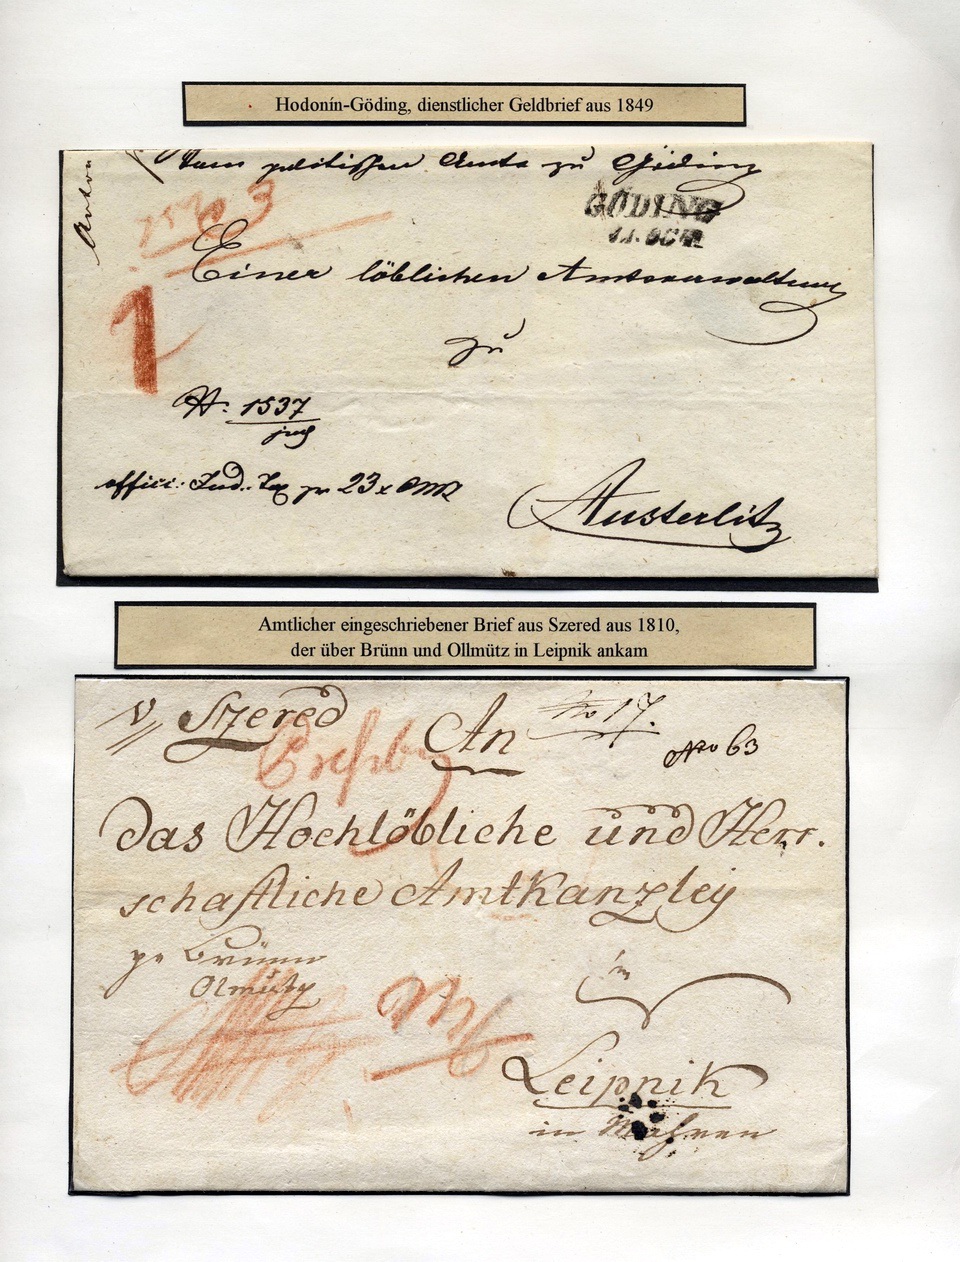 Hodonín-Göding, dienstlicher Geldbrief aus 1849
Anton
Vom politischen Amte zu Göding
N 3
GÖDING
11. OCT.
Einer löblichen Amtsverwaltung
1
zu
N: 1537
jud
offici: Jud. Tax pr 23 x CMz
Austerlitz
Amtlicher eingeschriebener Brief aus Szered aus 1810,
der über Brünn und Ollmütz in Leipnik ankam
v. Szered
An
No 17.
Nro 63
das Hochlöbliche und Herr.
schaftliche Amtkanzley
pr Brünn
Olmütz
in
Leipnik
in Mähren